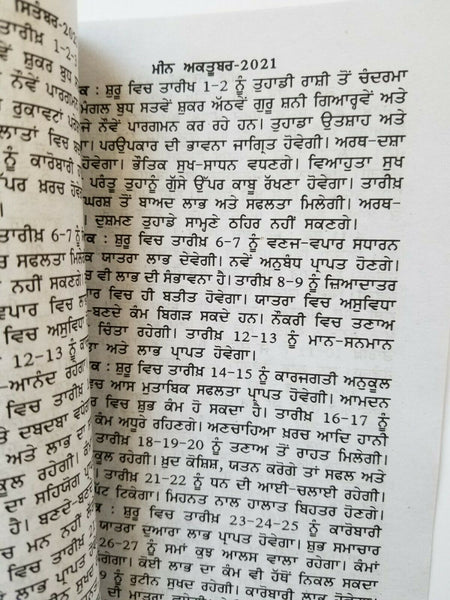 ਸਿਤੰਬਰ-202
ਤਾਰੀਖ਼ 1-2-3
ਵੇਂ ਸ਼ੁਕਰ ਬੁਧ
ਨੌਵੇਂ ਪਾਰਗਮਨ
ਰੁਕਾਵਟਾਂ
ਲਾਤਾਂ ਵਿਚ
ਨੂੰ ਕਾਰੋਬਾਰੀ
ਉੱਪਰ ਖ਼ਰਚ ਹੋਵੇ
ਤਾਰੀਖ਼ 6-7 ਨੂੰ
ਸਫਲਤਾ ਮਿਲੇਗੀ
ਨਹੀਂ ਸਕਣਗੇ।
ਵਪਾਰ ਵਿਚ ਲਾਭ
ਵਿਚ ਅਸੁਵਿ
12-13 ਨੂੰ
-ਆਨੰਦ ਰਹੇਗਾ
ਦਬਦਬਾ
ਅਤੇ ਲਾਭ ਦਾ
ਕੂਲ ਰਹੇਗੀ।
ਦਾ ਸਹਿਯੋਗ
ਹੈ। ਬਣਦੇ-ਬਣਦੇ
ਚ ਮਨ ਨਹੀਂ
ਲਾਭ ਪ੍ਰਾਪਤ
ਮੀਨ ਅਕਤੂਬਰ-2021
ਕ : ਸ਼ੁਰੂ ਵਿਚ ਤਾਰੀਖ਼ 1-2 ਨੂੰ ਤੁਹਾਡੀ ਰਾਸ਼ੀ ਤੋਂ ਚੰਦਰਮਾ
ਮੰਗਲ ਬੁਧ ਸਤਵੇਂ ਸ਼ੁਕਰ ਅੱਠਵੇਂ ਗੁਰੂ ਸ਼ਨੀ ਗਿਆਰ੍ਹਵੇਂ ਅਤੇ
ਜੇ ਨੌਵੇਂ ਪਾਰਗਮਨ ਕਰ ਰਹੇ ਹਨ। ਤੁਹਾਡਾ ਉਤਸ਼ਾਹ ਅਤੇ
ਗਾ। ਪਰਉਪਕਾਰ ਦੀ ਭਾਵਨਾ ਜਾਗ੍ਰਿਤ ਹੋਵੇਗੀ। ਅਰਥ-ਦਸ਼ਾ
ਹੋਵੇਗਾ। ਭੌਤਿਕ ਸੁਖ-ਸਾਧਨ ਵਧਣਗੇ। ਵਿਆਹੁਤਾ ਸੁਖ
ਪਰੰਤੂ ਤੁਹਾਨੂੰ ਗੁੱਸੇ ਉੱਪਰ ਕਾਬੂ ਰੱਖਣਾ ਹੋਵੇਗਾ। ਤਾਰੀਖ਼
ਘਰਸ਼ ਤੋਂ ਬਾਅਦ ਲਾਭ ਅਤੇ ਸਫਲਤਾ ਮਿਲੇਗੀ। ਅਰਥ-
ਦੁਸ਼ਮਣ ਤੁਹਾਡੇ ਸਾਮ੍ਹਣੇ ਠਹਿਰ ਨਹੀਂ ਸਕਣਗੇ।
ਕ : ਸ਼ੁਰੂ ਵਿਚ ਤਾਰੀਖ਼ 6-7 ਨੂੰ ਵਣਸ-ਵਪਾਰ ਸਧਾਰਨ
ਯਾਤਰਾ ਲਾਭ ਦੇਵੇਗੀ। ਨਵੇਂ ਅਨੁਬੰਧ ਪ੍ਰਾਪਤ ਹੋਣਗੇ।
ਵੀ ਲਾਭ ਦੀ ਸੰਭਾਵਨਾ ਹੈ। ਤਾਰੀਖ਼ 8-9 ਨੂੰ ਜ਼ਿਆਦਾਤਰ
ਵਿਚ ਹੀ ਬਤੀਤ ਹੋਵੇਗਾ। ਯਾਤਰਾ ਵਿਚ ਅਸੁਵਿਧਾ
-ਬਣਦੇ ਕੰਮ ਬਿਗੜ ਸਕਦੇ ਹਨ। ਨੌਕਰੀ ਵਿਚ ਤਣਾਅ
ਚਿੰਤਾ ਰਹੇਗੀ। ਤਾਰੀਖ਼ 12-13 ਨੂੰ ਮਾਨ-ਸਨਮਾਨ
ਗਾ ਅਤੇ ਲਾਭ ਪ੍ਰਾਪਤ ਹੋਵੇਗਾ।
ਕ : ਸ਼ੁਰੂ ਵਿਚ ਤਾਰੀਖ਼ 14-15 ਨੂੰ ਕਾਰਜਗਤੀ ਅਨੁਕੂਲ
ਵਿਚ ਆਸ ਮੁਤਾਬਿਕ ਸਫਲਤਾ ਪ੍ਰਾਪਤ ਹੋਵੇਗੀ। ਆਮਦਨ
ਵਿਚ ਸ਼ੁਭ ਕੰਮ ਹੋ ਸਕਦਾ ਹੈ। ਤਾਰੀਖ਼ 16-17 ਨੂੰ
ਕੰਮ ਅਧੂਰੇ ਰਹਿਣਗੇ। ਅਣਚਾਹਿਆ ਖ਼ਰਚ ਆਦਿ ਹਾਨੀ
ਤਾਰੀਖ਼ 18-19-20 ਨੂੰ ਤਣਾਅ ਤੋਂ ਰਾਹਤ ਮਿਲੇਗੀ।
ਕੂਲ ਰਹੇਗੀ। ਖ਼ੁਦ ਕੋਸ਼ਿਸ਼, ਯਤਨ ਕਰੋਗੇ ਤਾਂ ਸਫਲ ਅਤੇ
ਤਾਰੀਖ਼ 21-22 ਨੂੰ ਧਨ ਦੀ ਆਈ-ਚਲਾਈ ਰਹੇਗੀ।
ਘੱਟ ਟਿਕੇਗਾ। ਮਿਹਨਤ ਨਾਲ ਹਾਲਾਤ ਬਿਹਤਰ ਹੋਣਗੇ।
ਕ : ਸ਼ੁਰੂ ਵਿਚ ਤਾਰੀਖ਼ 23-24-25 ਨੂੰ ਕਾਰੋਬਾਰੀ
ਯਾਤਰਾ ਦੁਆਰਾ ਲਾਭ ਪ੍ਰਾਪਤ ਹੋਵੇਗਾ। ਸ਼ੁਭ ਸਮਾਚਾਰ
26-27 ਨੂੰ ਸਮਾਂ ਕੁਝ ਆਲਸ ਵਾਲਾ ਰਹੇਗਾ। ਕੰਮਾਂ
ਰਹੇਗਾ। ਕੋਈ ਲਾਭ ਦਾ ਕੰਮ ਵੀ ਹੱਥੋਂ ਨਿਕਲ ਸਕਦਾ
ਨੂੰ ਰੁਟੀਨ ਸੁਖਦ ਰਹੇਗੀ। ਕਾਰੋਬਾਰੀ